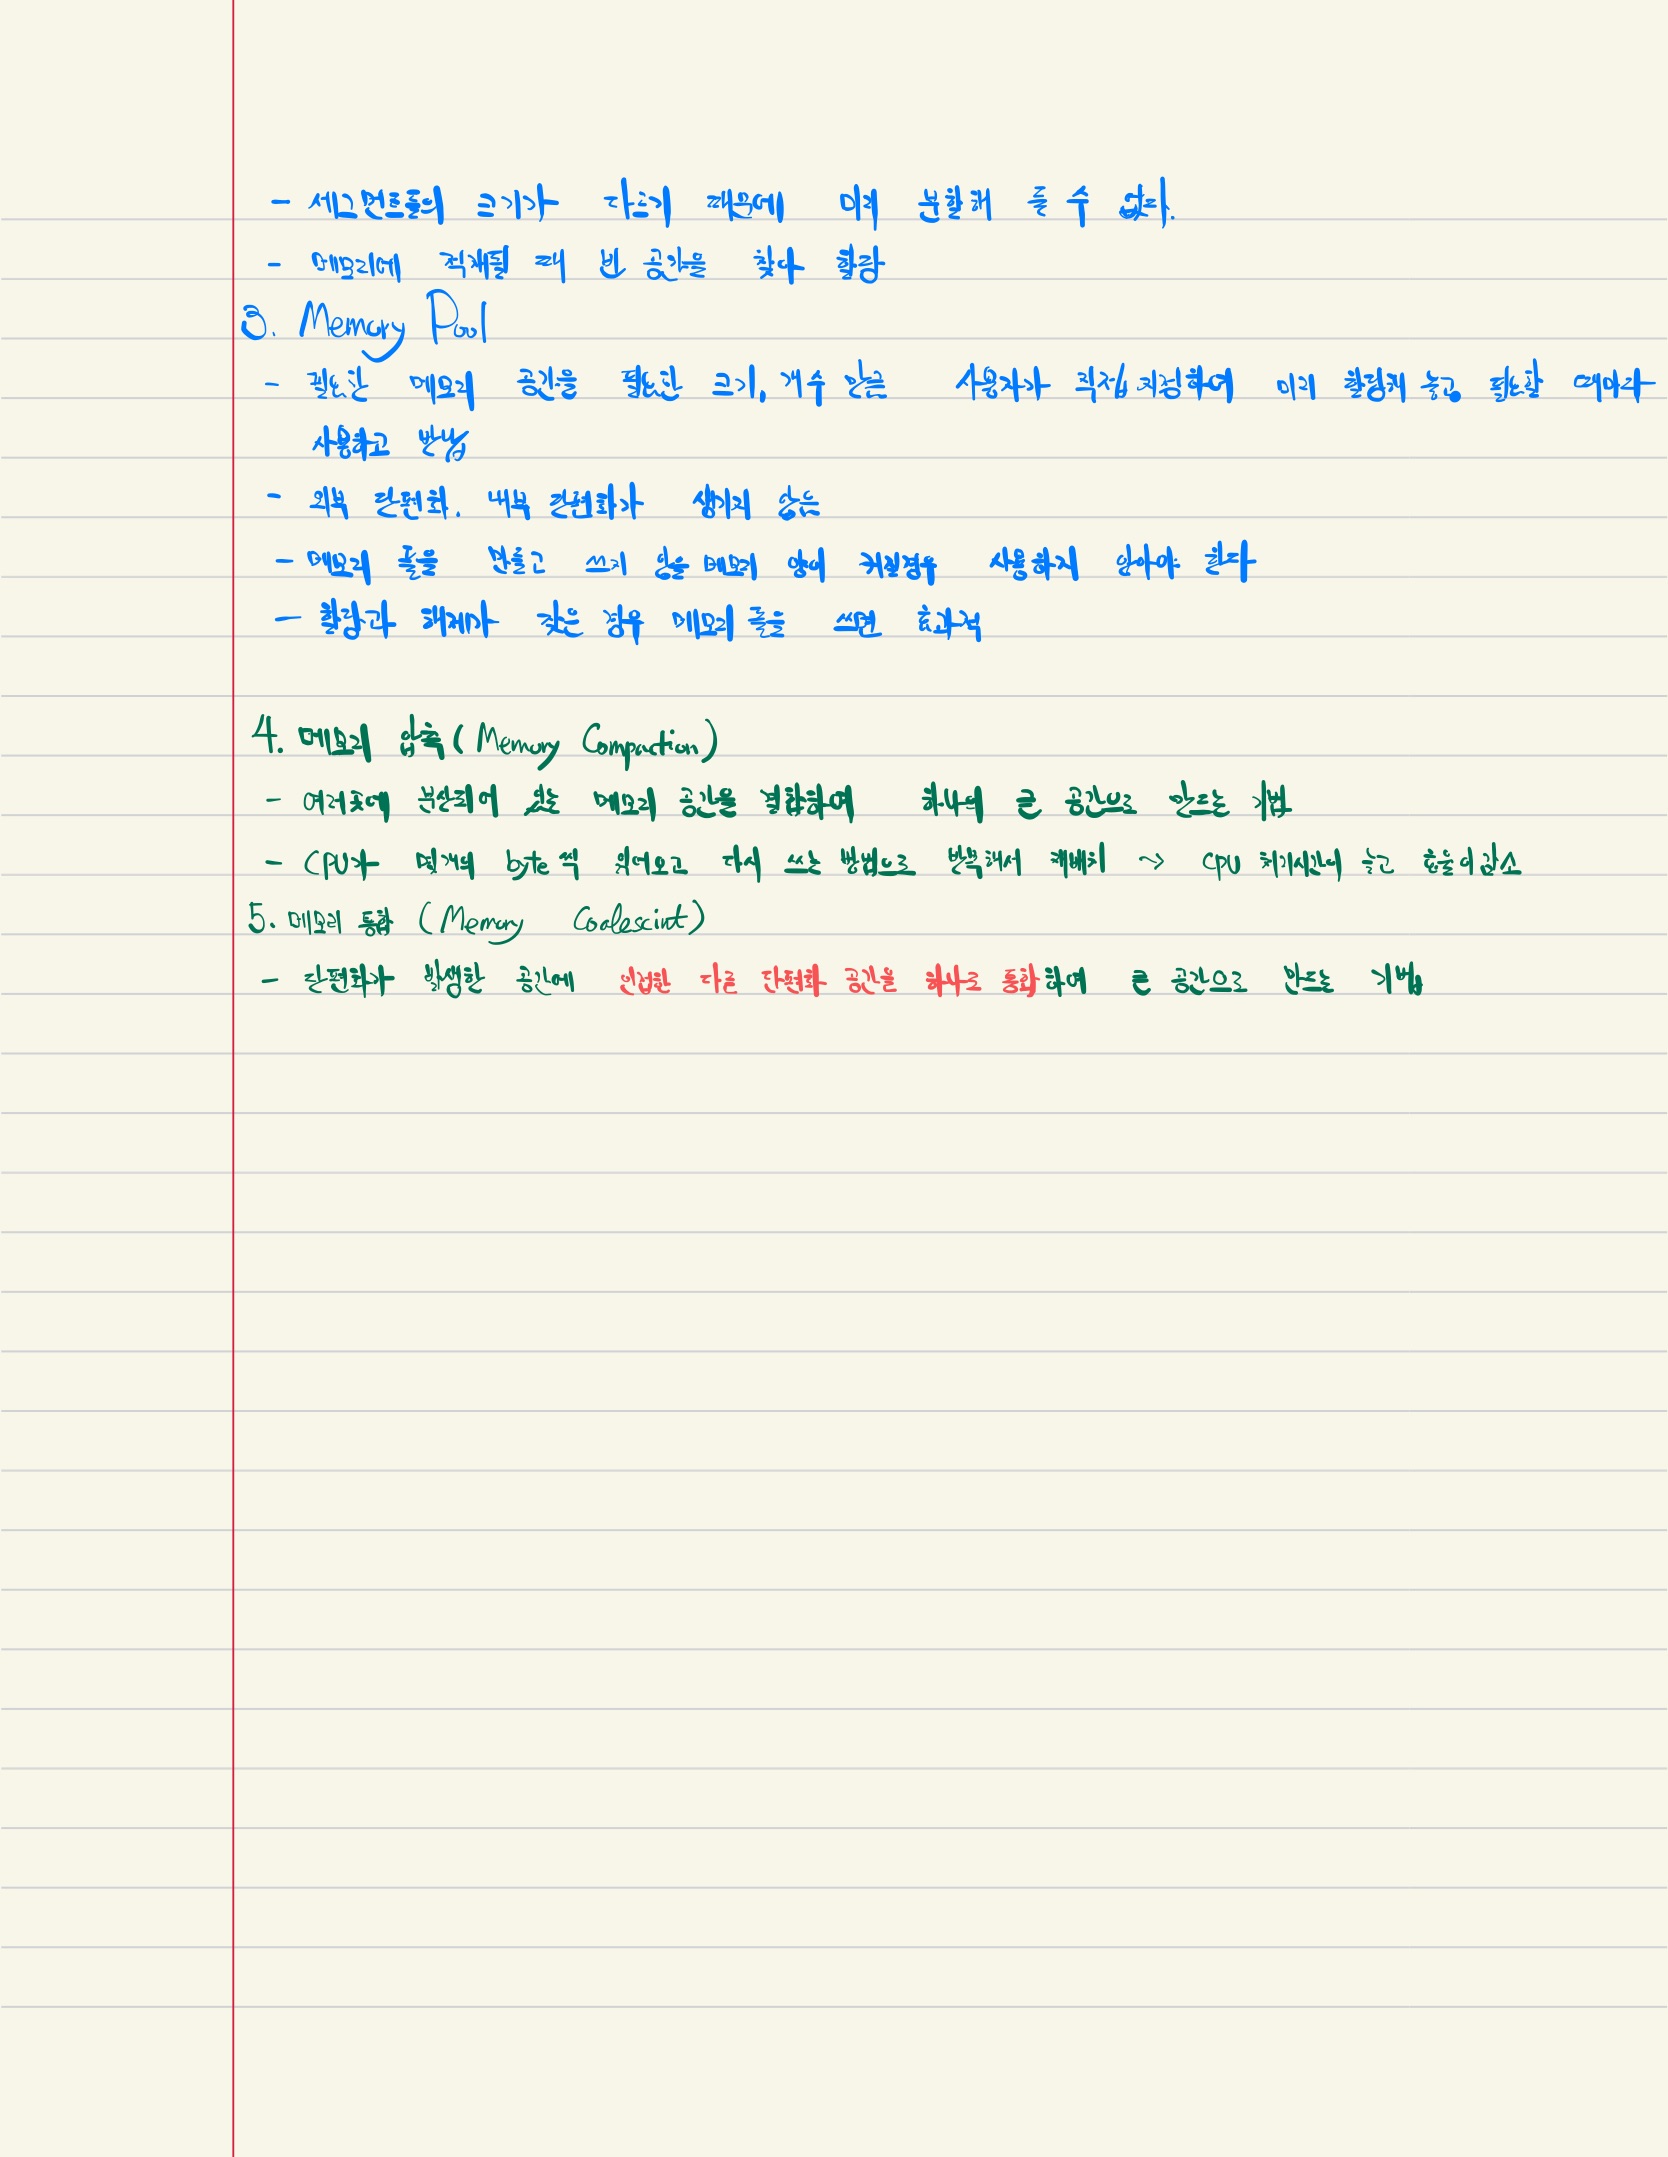 - 세그먼트들의 크기가 다르기 때문에 미리 분할해 둘 수 없다.
- 메모리에 적재될 때 빈 공간을 찾아 할당
3. Memory Pool
- 필요한 메모리 공간을 필요한 크기, 개수 만큼 사용자가 직접 지정하여 미리 할당해 놓고 필요할 때마다
사용하고 반납
- 외부 단편화, 내부 단편화가 생기지 않음
- 메모리 풀을 만들고 쓰지 않을 메모리 양이 커질경우 사용하지 않아야 한다
- 할당과 해제가 잦은 경우 메모리 풀을 쓰면 효과적
4. 메모리 압축 (Memory Compaction)
- 여러곳에 분산되어 있는 메모리 공간을 결합하여 하나의 큰 공간으로 만드는 기법
- CPU가 몇개의 byte 씩 읽어오고 다시 쓰는 방법으로 반복해서 재배치 → CPU 처리시간이 늘고 효율이 감소
5. 메모리 통합 (Memory Coalescint)
- 단편화가 발생한 공간에 인접한 다른 단편화 공간을 하나로 통합하여 큰 공간으로 만드는 기법